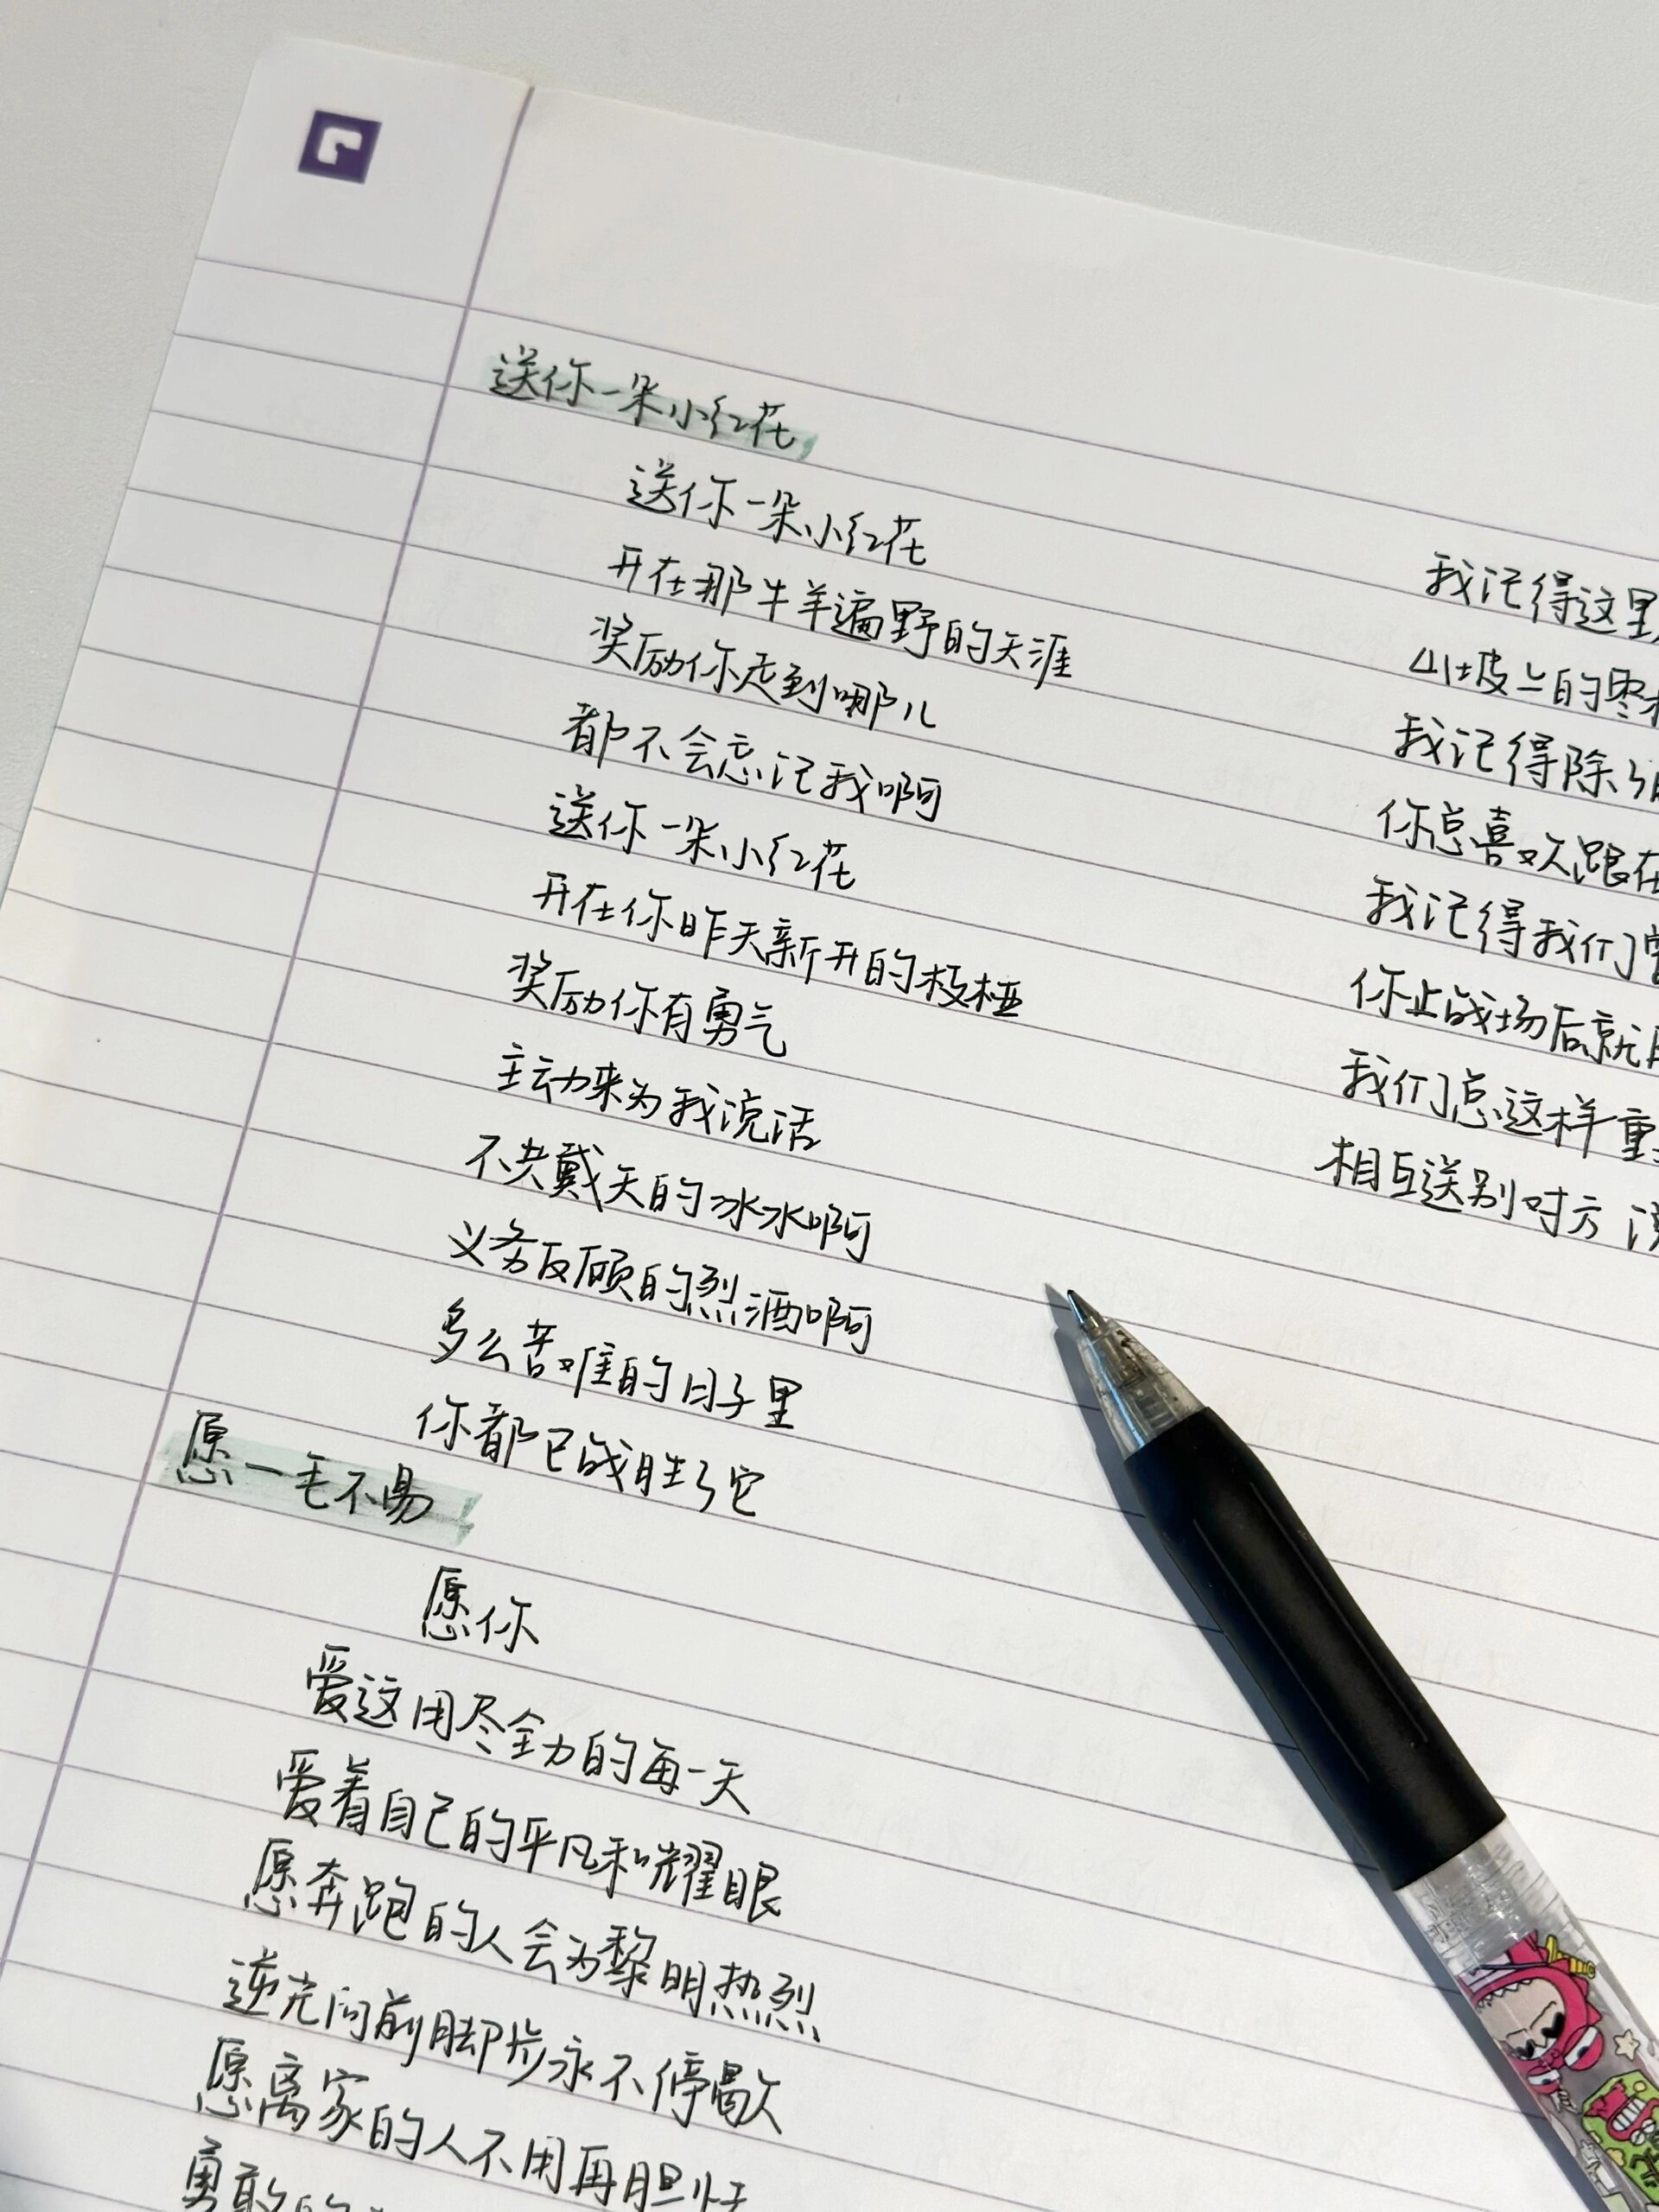 送你一朵小红花
送你一朵小红花
开在那牛羊遍野的天涯
奖励你走到哪儿
都不会忘记我啊
送你一朵小红花
开在你昨天新开的枝桠
奖励你有勇气
主动来为我说话
不共戴天的冰水啊
义务反顾的烈酒啊
多么苦难的日子里
你都已战胜了它
我记得这里
山坡上的零
我记得除了
你总喜欢跟在
我记得我们
你上战场后就
我们总这样重
相互送别对方
愿一毛不易
愿你
爱这用尽全力的每一天
爱着自己的平凡和耀眼
愿奔跑的人会为黎明热烈
逆光向前脚步永不停歇
愿离家的人不用再胆怯
勇敢的